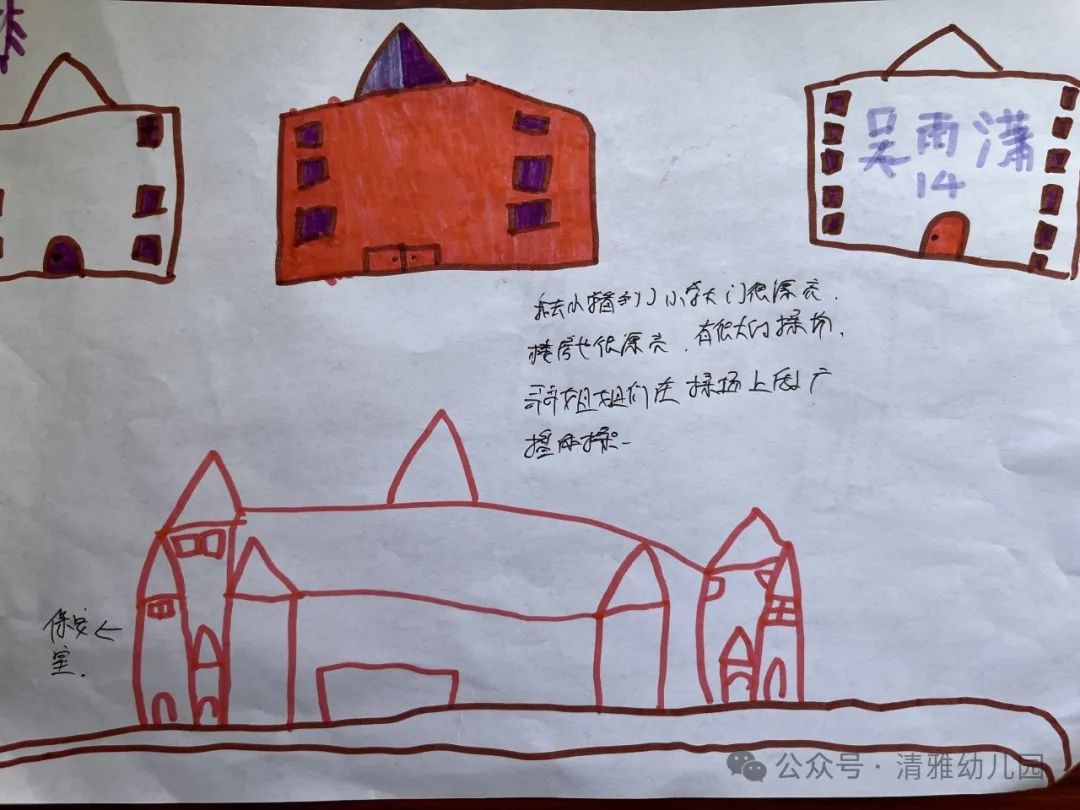 吴雨潇
14
我去小播到了小学大门很漂亮.
楼房也很漂亮.有很大的操场.
哥哥姐姐们在操场上做广
播体操.
保安
室.
公众号·清雅幼儿园